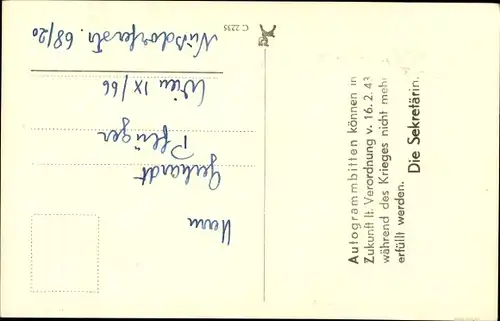 Autogrammbitten können in
Zukunft lt. Verordnung v. 16. 2. 43
während des Krieges nicht mehr
erfüllt werden.
Die Sekretärin.
C 2235
Herrn
Gerhardt
Pflüger
Wien IX/66
Nussdorferstr. 68/20